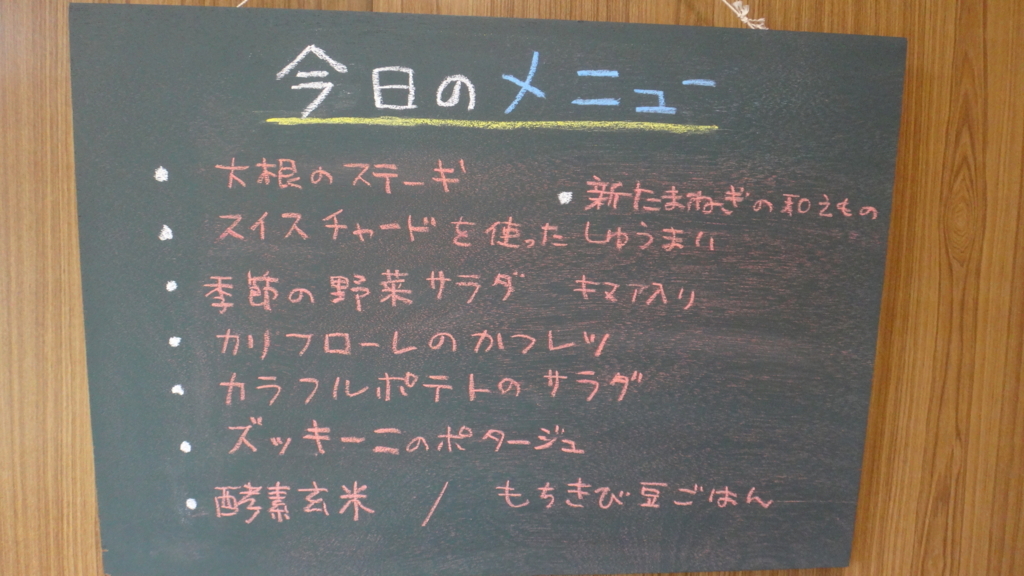 今日のメニュー
・大根のステーキ
・新たまねぎの和えもの
・スイスチャードを使ったしゅうまい
・季節の野菜サラダ キヌア入り
・カリフローレのカツレツ
・カラフルポテトのサラダ
・ズッキーニのポタージュ
・酵素玄米 / もちきび豆ごはん